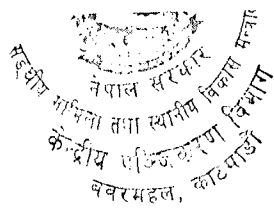 नेपाल सरकार
सङ्घीय मामिला तथा स्थानीय विकास मन्त्रालय
केन्द्रीय पञ्जिकरण विभाग
बबरमहल, काठमाडौं